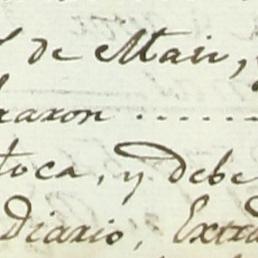 de Mair,
raron ......
toca, y debe
Diario, Extra